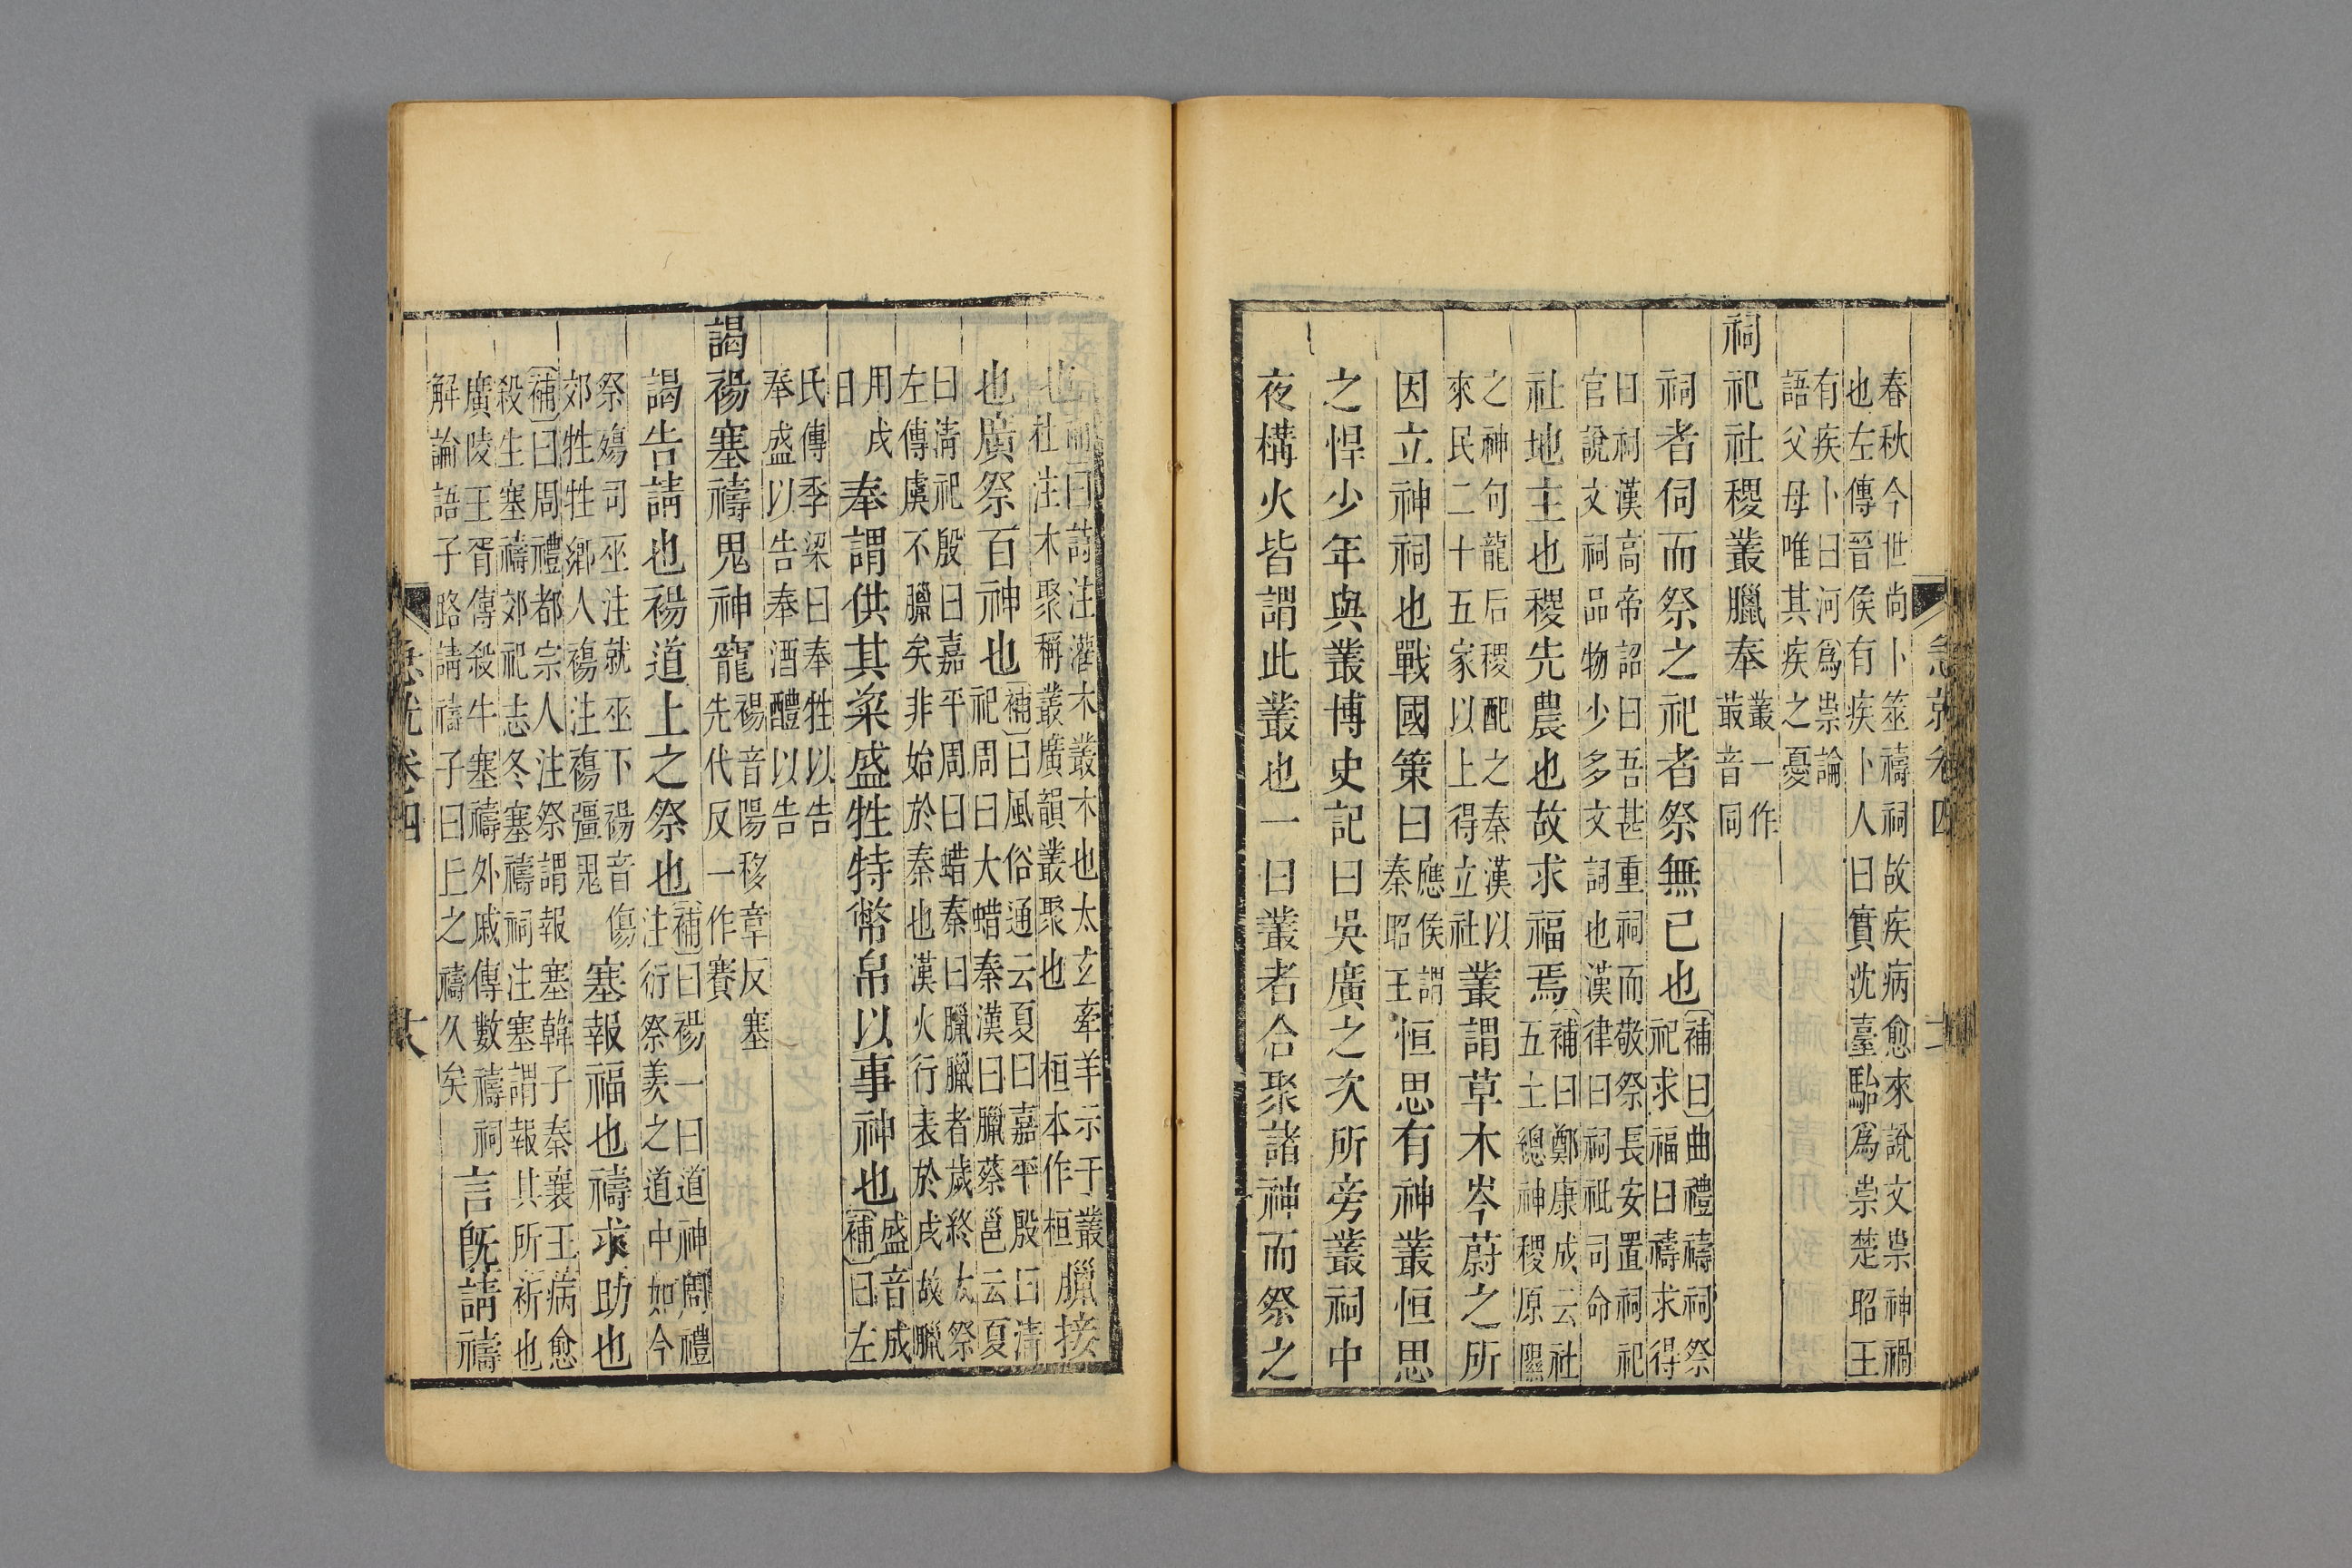 春秋今世尚卜筮禱祠故疾病愈來說文祟神禍
也左傳晉侯有疾卜人曰實沈臺駘爲祟楚昭王
有疾卜曰河爲祟論
語父母唯其疾之憂
祠祀社稷叢臘奉
叢一作
菆音同
祠者伺而祭之祀者祭無已也
〔補曰〕曲禮禱祠祭
祀求福曰禱求得
曰祠漢高帝詔曰吾甚重祠而敬祭長安置祠祀
官說文祠品物少多文詞也漢律曰祠祉司命
社地主也稷先農也故求福焉
〔補曰鄭康成云社
五土總神稷原隰
之神句龍后稷配之秦漢以
來民二十五家以上得立社
叢謂草木岑蔚之所
因立神祠也戰國策曰
應侯謂
秦昭王
恒思有神叢恒思
之悍少年與叢博史記曰吳廣之次所旁叢祠中
夜構火皆謂此叢也一曰叢者合聚諸神而祭之
曰詩注灌木叢木也太玄牽羊示于叢
社注木聚稱叢廣韻叢聚也
桓本作桓
臘接
也廣祭百神也
〔補〕曰風俗通云夏曰嘉平殷曰清
祀周曰大蜡秦漢曰臘蔡邕云夏
曰清祀殷曰嘉平周曰蜡秦曰臘臘者歲終大祭
左傳虞不臘矣非始於秦也漢火行衰於戌故臘
用戌
日
奉謂供其粢盛牲特幣帛以事神也
盛音成
〔補〕曰左
氏傳季梁曰奉牲以告
奉盛以告奉酒醴以告
謁禓塞禱鬼神寵
禓音陽移章反塞
先代反一作賽
謁告請也禓道上之祭也
〔補〕曰禓一曰道神周禮
注衍祭羨之道中如今
祭殤司巫注就巫下禓音傷
郊牲牲鄉人禓注禓彊鬼
塞報福也禱求助也
〔補〕曰周禮都宗人注祭謂報塞韓子秦襄王病愈
殺生塞禱郊祀志冬塞禱祠注塞謂報其所祈也
廣陵王胥傳殺牛塞禱外戚傳數禱祠
解論語子路請禱子曰丘之禱久矣
言既請禱